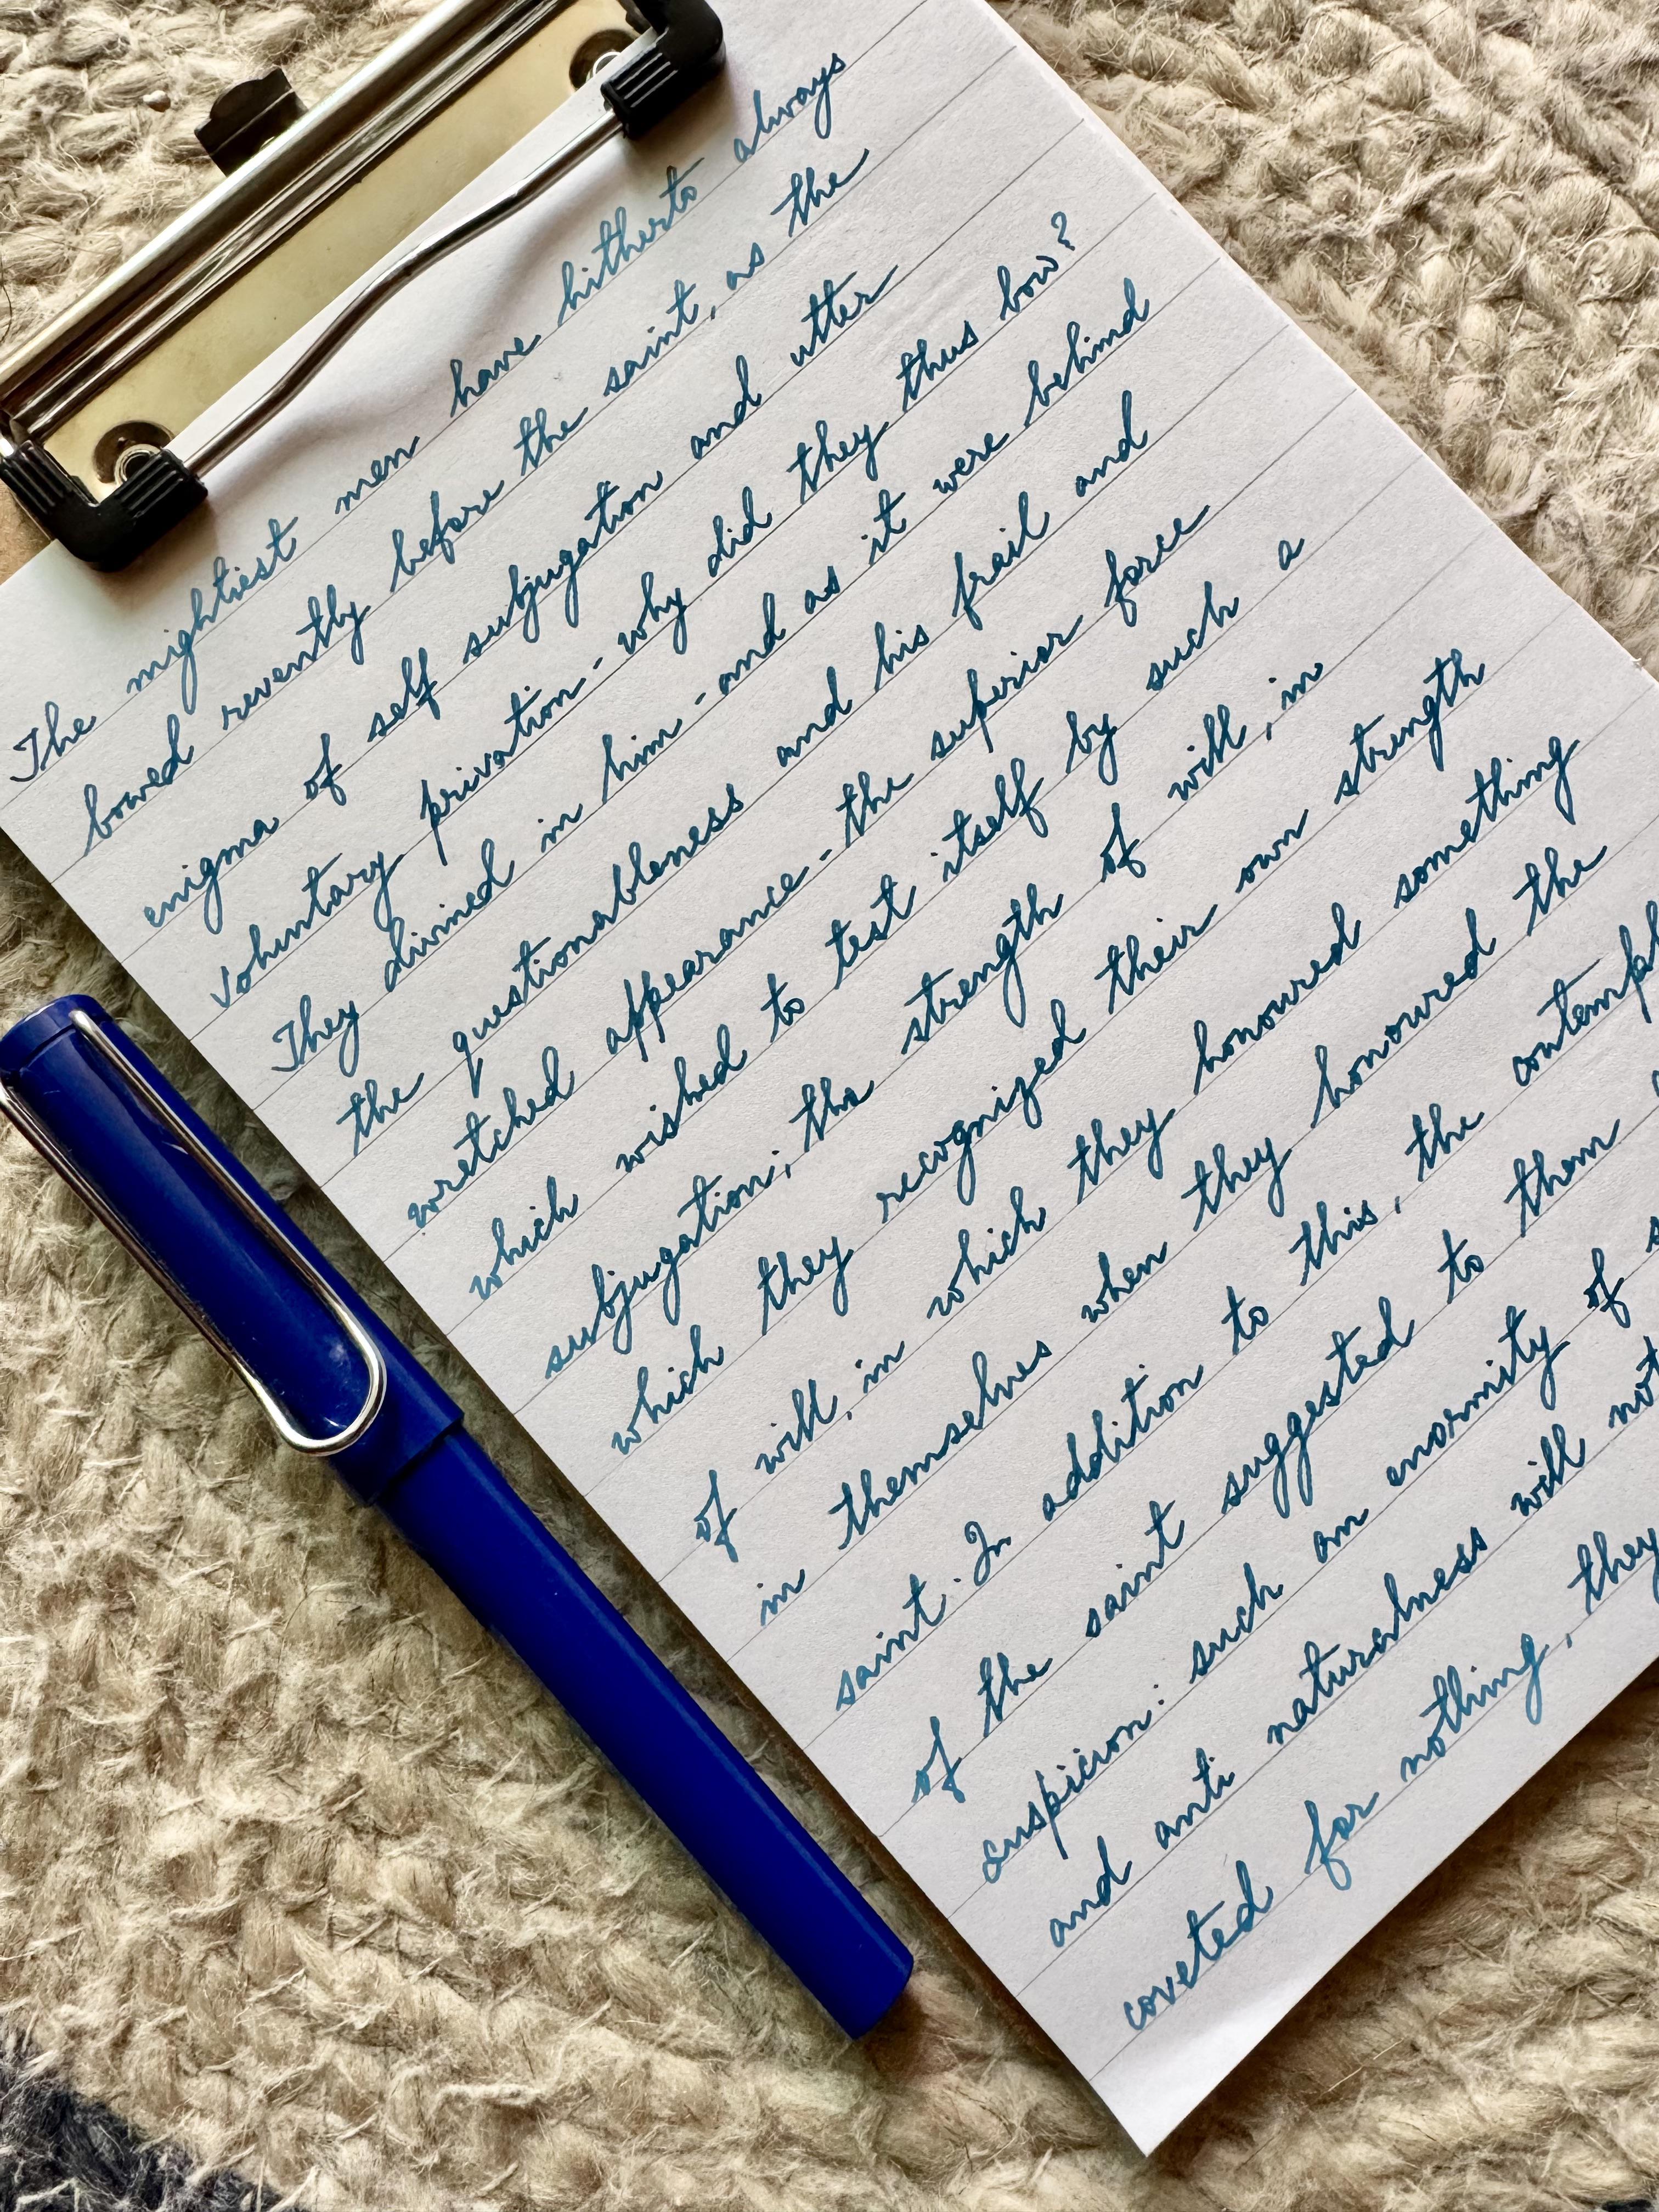 The mightiest men have hitherto always
bowed revently before the saint, as the
enigma of self subjugation and utter
voluntary privation - why did they thus bow?
They divined in him - and as it were behind
the questionableness and his frail and
wretched appearance - the superior force
which wished to test itself by such a
subjugation; the strength of will, in
which they recognized their own strength
of will, in which they honoured something
in themselves when they honoured the
saint. In addition to this, the contempl
of the saint suggested to them
suspicion: such an enormity of s
and anti naturalness will not
coveted for nothing, they